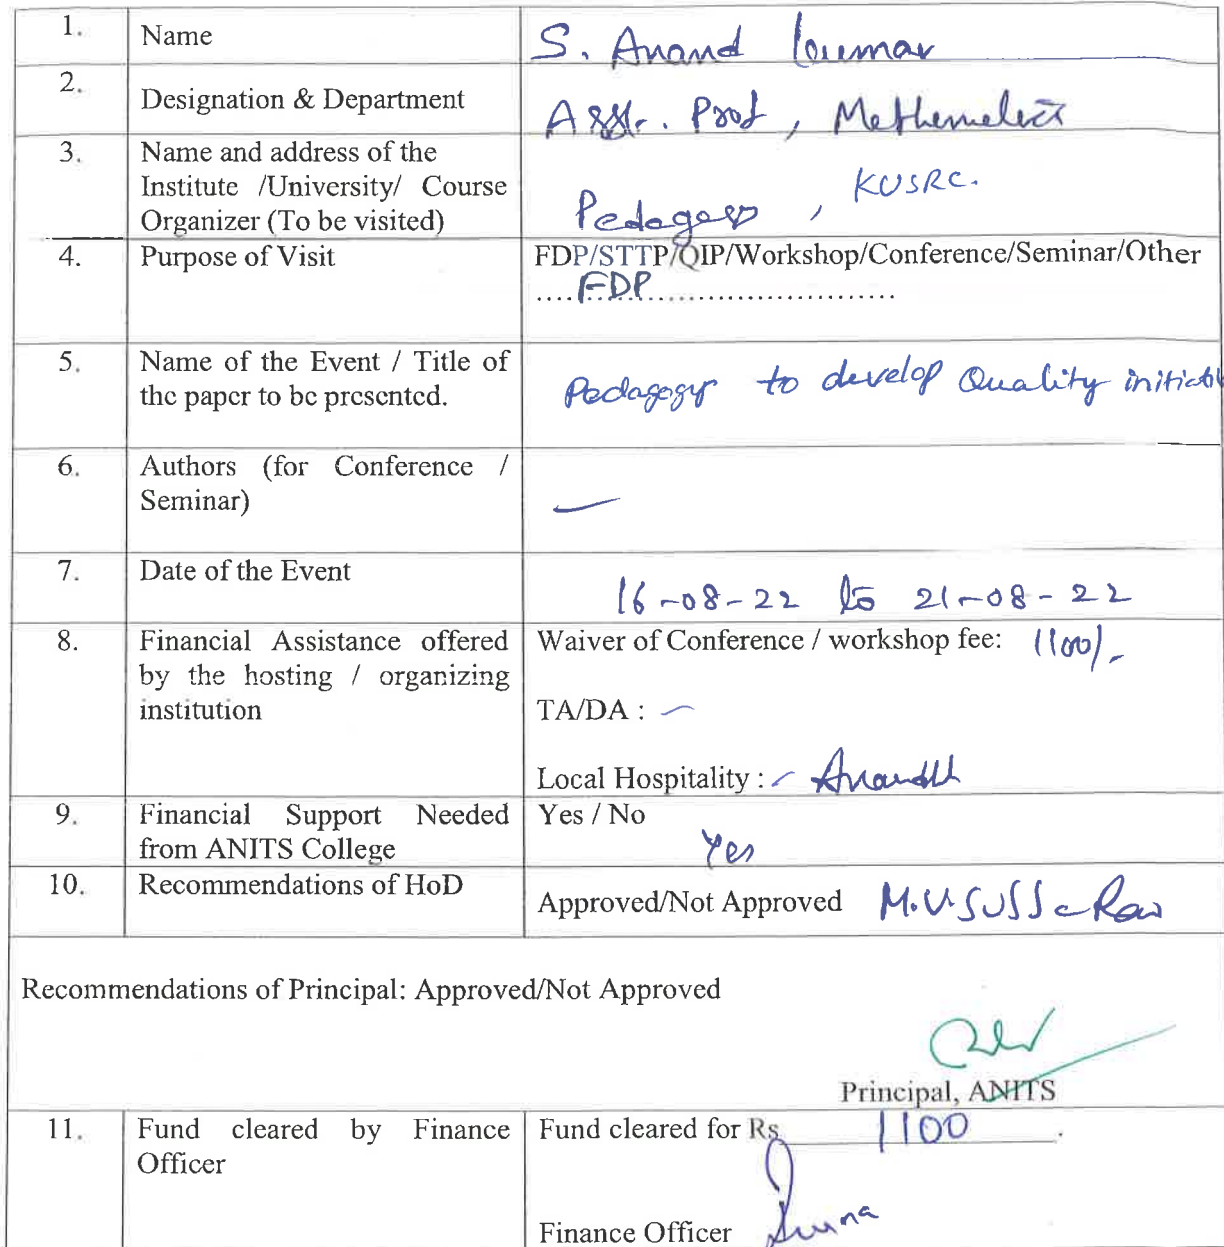 1. Name S. Anand Kumar
2. Designation & Department Asst. Prof, Mathematics
3. Name and address of the
Institute /University/ Course
Organizer (To be visited) Pedagogy, KUSRC.
4. Purpose of Visit FDP/STTP/QIP/Workshop/Conference/Seminar/Other
....FDP..............................
5. Name of the Event / Title of
the paper to be presented. Pedagogy to develop Quality initiativ
6. Authors (for Conference /
Seminar) —
7. Date of the Event 16-08-22 to 21-08-22
8. Financial Assistance offered
by the hosting / organizing
institution
Waiver of Conference / workshop fee: 1100/-
TA/DA : -
Local Hospitality : -
9. Financial Support Needed
from ANITS College
Yes / No
Yes
10. Recommendations of HoD Approved/Not Approved
Recommendations of Principal: Approved/Not Approved
Principal, ANITS
11. Fund cleared by Finance
Officer
Fund cleared for Rs 1100.
Finance Officer